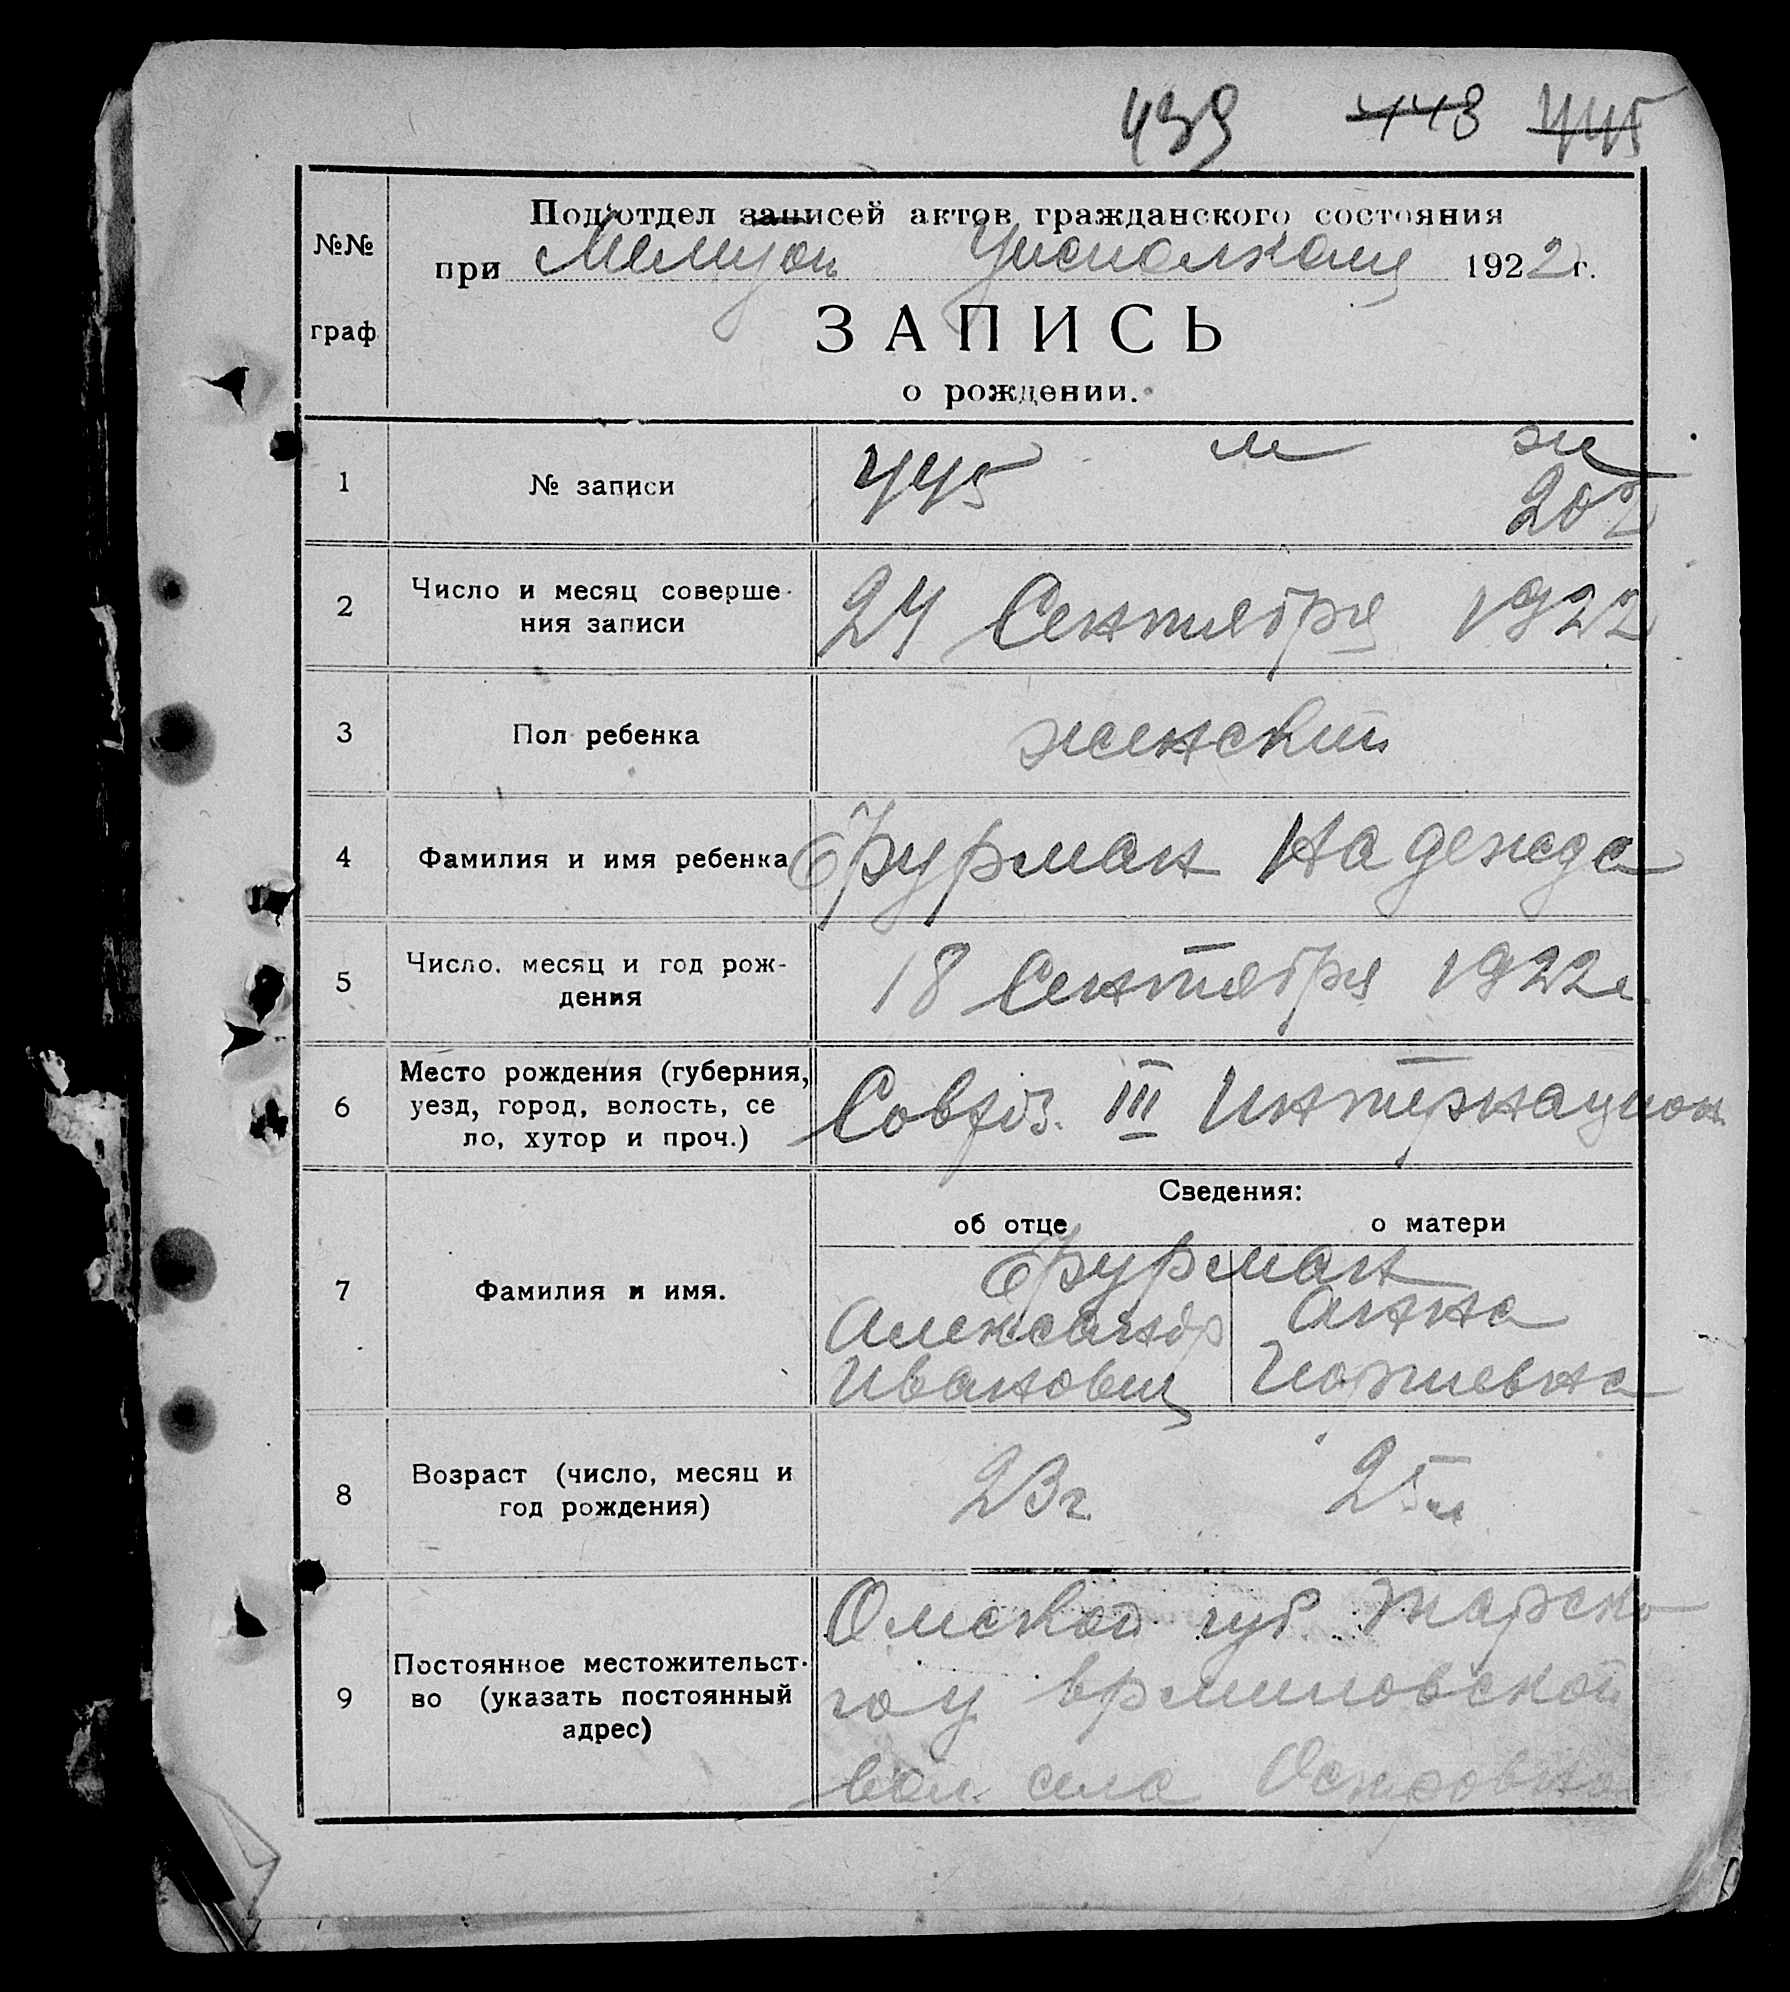 439 443 445
Подотдел записей актов гражданского состояния
№№
при Уисполкоме 1922 г.
граф
ЗАПИСЬ
о рождении.
м ж
1 № записи 445
207
2 Число и месяц соверше-
ния записи
24 Сентября 1922
3 Пол ребенка женский
4 Фамилия и имя ребенка Фурман Надежда
5 Число, месяц и год рож-
дения
18 Сентября 1922 г
6 Место рождения (губерния,
уезд, город, волость, се
ло, хутор и проч.)
Совхоз. III Интернацион
Сведения:
об отце о матери
7 Фамилия и имя.
Фурман
Александр Анна
Иванович
8 Возраст (число, месяц и
год рождения)
23 г. 25 л
9 Постоянное местожительст-
во (указать постоянный
адрес)
Омской губ Тарско
го у
вол. села